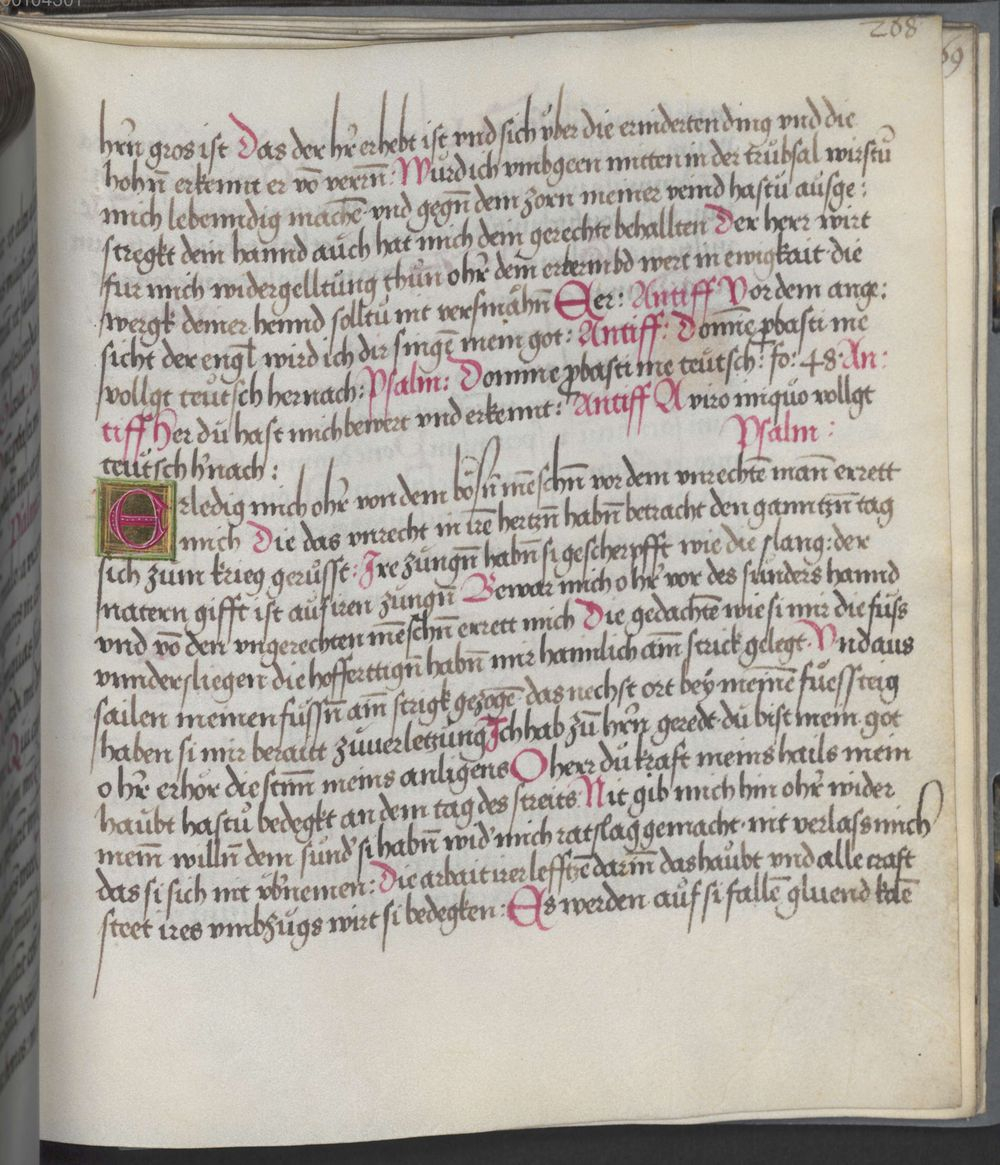 208
69
hr̄n gros ist Das der hr̄ erhebt ist vnd sich vber die ernidertten ding vnd die
hohn̄ erkennt er vō verrn̄: Wurd ich vmbgeen mitten in der trübsal wirstu
mich lebenndig machē vnd gegn̄ dem zorn meiner veind hastu ausge:
stregkt dein hannd auch hat mich dein gerechte behallten Der herr wirt
fur mich widergelltung thun o hr̄ dein erbermbd wert in ewigkait die
wergk deiner hennd solltu nit versmähn̄ Eer: Antiff Vor dem ange:
sicht der engl wird ich dir singē mein got: Antiff: Domīe ꝓbasti me
vollgt teutsch hernach: Psalm: Domine ꝓbasti me teutsch: fo: 48 An:
tiff Her du hast mich bewert vnd erkennt: Antiff A viro iniquo vollgt
teutsch h'nach: Psalm:
Erledig mich o hr̄ von dem bösn̄ mēschn̄ vor dem vnrechtē man̄ errett
mich Die das vnrecht in irē hertzn̄ habn̄ betracht den ganntzn̄ tag
sich zum krieg gerüsst: Ire zungn̄ habn̄ si gescherpfft wie die slang: der
natern gifft ist auf iren zungn̄ Bewar mich o hr̄ vor des sunders hannd
vnd vō den vngerechten mēschn̄ errett mich Die gedachtē wie si mir die fuss
vnnderfliegen die hofferttign̄ habn̄ mir haimlich ain̄ strick gelegt Vnd aus
sailen meinen fussn̄ ain̄ strigk gezogē das nechst ort bey meinē fuessteig
haben si mir beraitt zuuerletzung Ich hab zū hr̄n geredt du bist mein got
o hr̄ erhör die stim̄ meins anligens O herr du kraft meins hails mein
haubt hastu bedegkt an dem tag des streits Nit gib mich hin o hr̄ wider
mein̄ willn̄ dem sund' si habn̄ wid' mich ratslag gemacht nit verlass mich
das si sich nit vb'nemen: Die arbait irer lefftzē darin̄ das haubt vnd alle craft
steet ires vmbzugs wirt si bedegken: Es werden auf si fallē gluend kolē